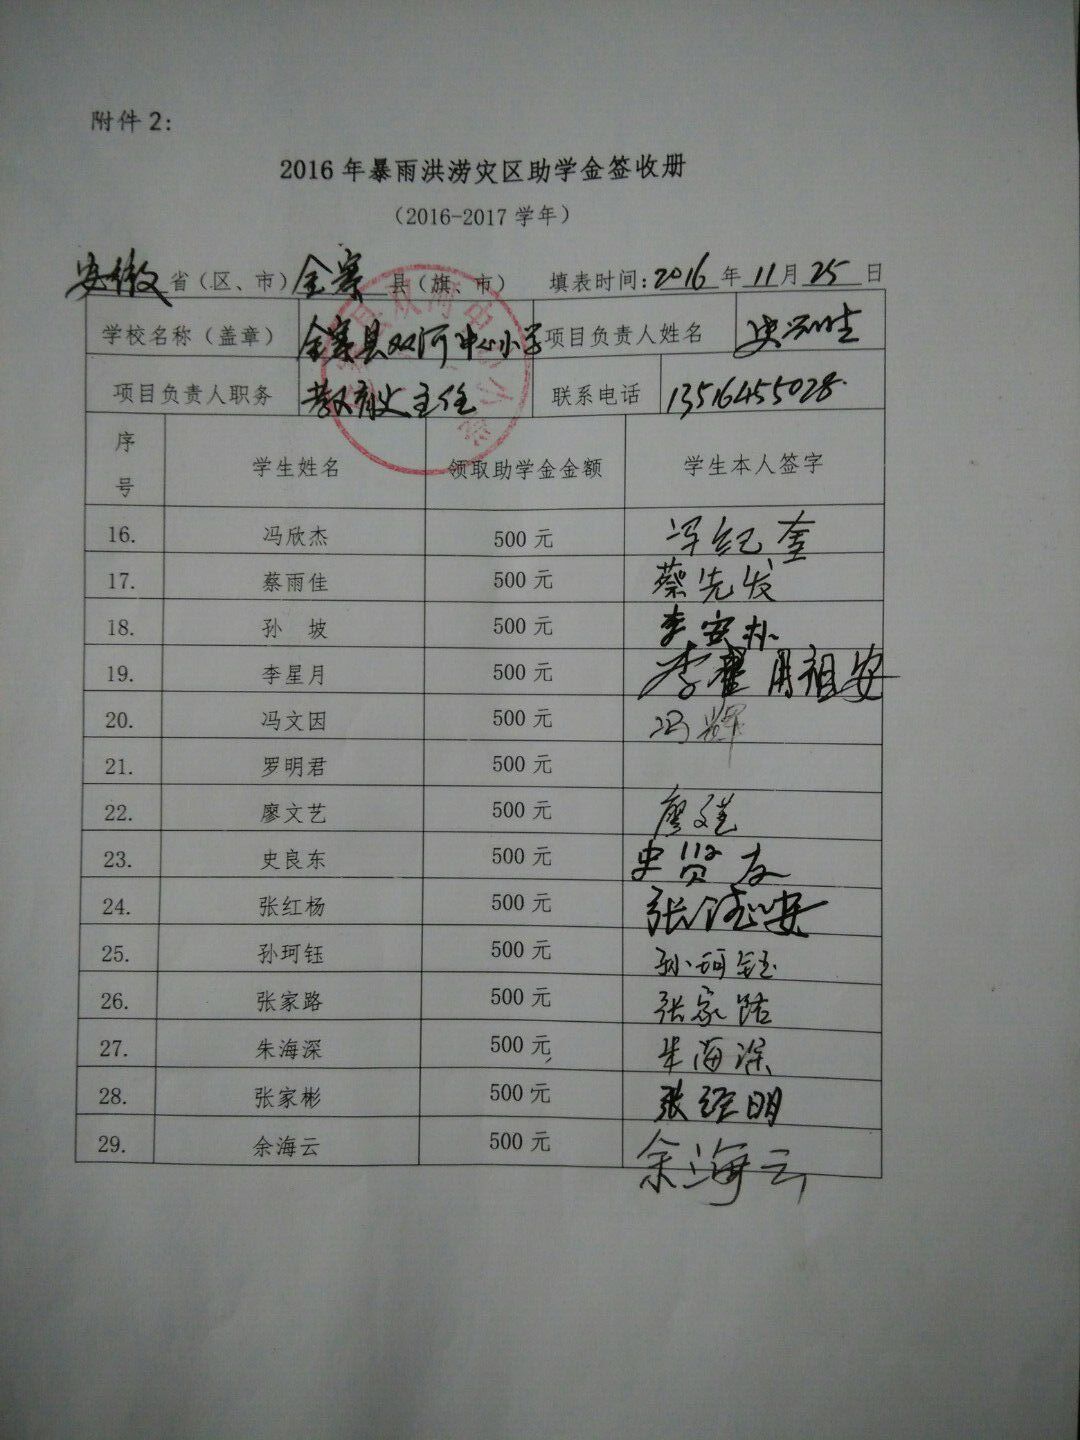 附件2：
2016年暴雨洪涝灾区助学金签收册
（2016-2017学年）
安徽省（区、市）金寨县（旗、市） 填表时间：2016年11月25日
学校名称（盖章） 金寨县双河中心小学 项目负责人姓名 史
项目负责人职务 主任 联系电话 13516455028.
序号 学生姓名 领取助学金金额 学生本人签字
16. 冯欣杰 500元 冯纪奎
17. 蔡雨佳 500元 蔡先发
18. 孙 坡 500元 李安朴
19. 李星月 500元 李 祖安
20. 冯文因 500元 冯辉
21. 罗明君 500元
22. 廖文艺 500元 廖文艺
23. 史良东 500元 史贤友
24. 张红杨 500元 张
25. 孙珂钰 500元 孙珂钰
26. 张家路 500元 张家路
27. 朱海深 500元 朱海深
28. 张家彬 500元 张经明
29. 余海云 500元 余海云